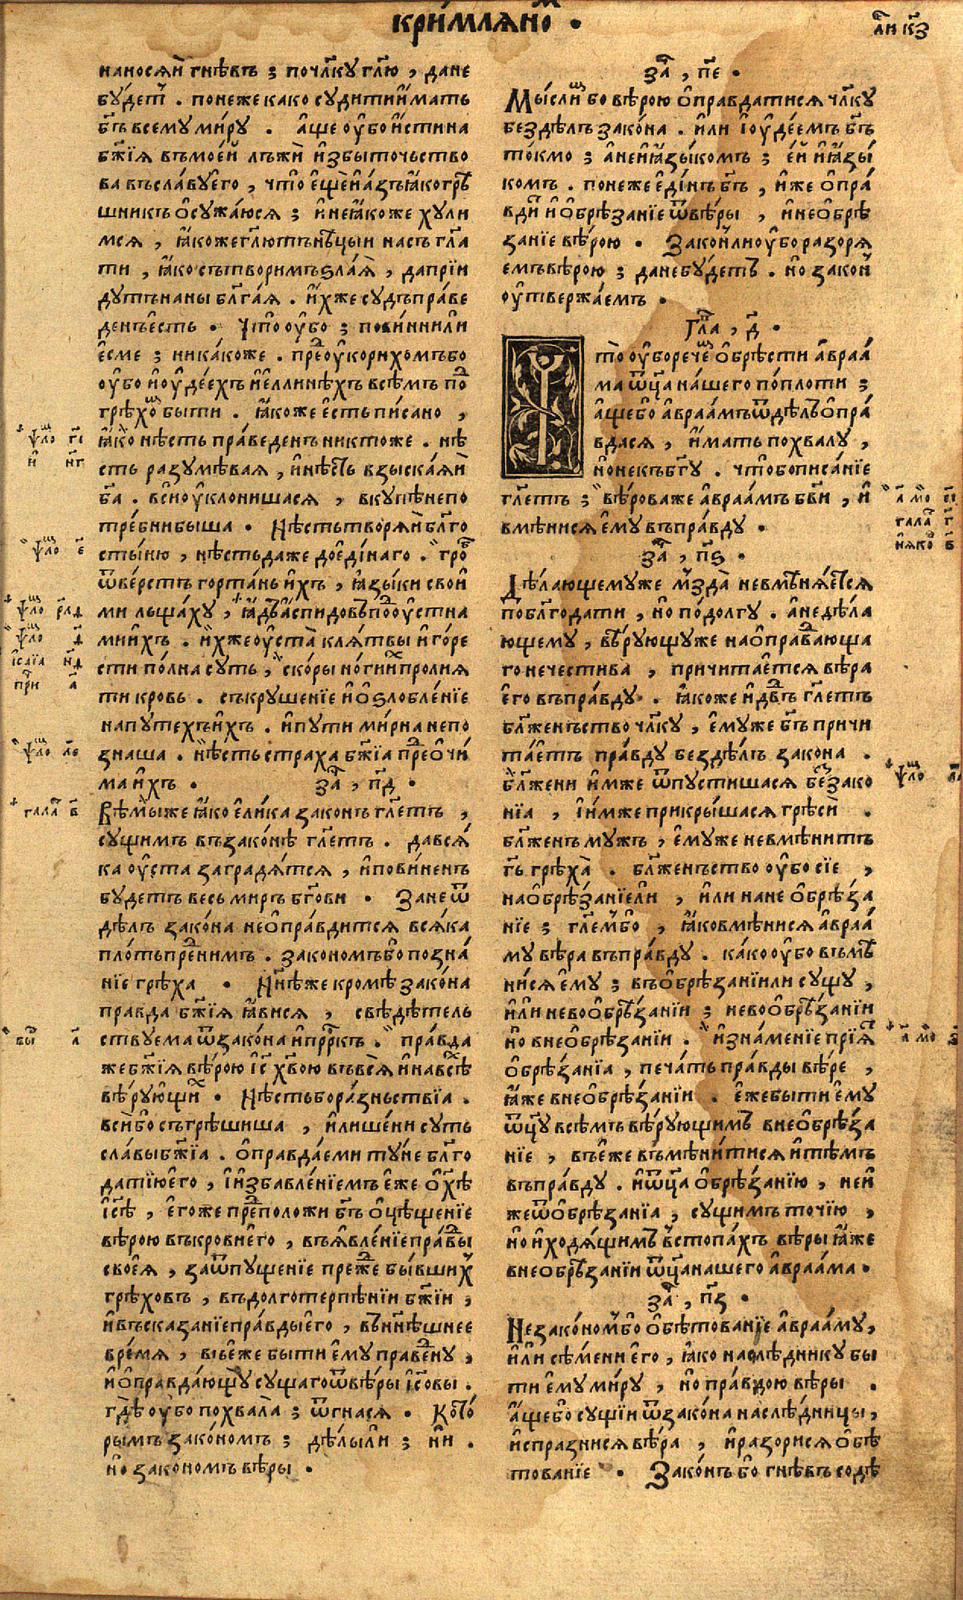 крѝмлѧно́ⷨ •
а҃п к҃з
наносѧ́й гнѣ́въ ; по чл҃ку гл҃ю , да не
бу́детⸯ . поне́же како суди́ти и҆́мать
бг҃ъ всему ми́ру . а҆ще ᲂу҆̀бо и҆́стина
бж҃їѧ въ мое́й лъжѝ и҆збы́точьство
ва въ сла́ву є҆го̀ , что̀ є҆щѐ и҆ а҆зъ ꙗ҆́ко грѣ
шникъ ѻ҆сужа́юсѧ ; и҆ не ꙗ҆́коже хули
мсѧ , ꙗ҆́коже гл҃ютъ нѣ́цыи на́съ гл҃а
ти , ꙗ҆́ко сътвори́мъ ѕла́ѧ , да прїи́
дутъ на ны бл҃га́ѧ . и҆́хже су́дъ пра́ве
денъ є҆сть • Что̀ ᲂу҆бо ; пови́нни ли
є҆сме ; ника́коже . преⷣᲂу҆кори́хомъ бо
ᲂу҆бо и҆ ї҆ᲂудѣ́ехъ и҆ є҆́ллинѣхъ всѣ́мъ поⷣ
грѣхо́ⷨ бы́ти . ꙗ҆́коже є҆́сть пи́сано ,
ꙗ҆́ко нѣ́сть пра́веденъ никто́же . нѣ́
сть разумѣ́ваѧ , и҆ нѣ́сть взыска́ѧй
бг҃а . всѝ ᲂу҆клони́шасѧ , вку́пѣ непо
тре́бни бы́ша • Нѣ́сть творѧ́й бл҃го
сты́ню , нѣ́сть да́же до є҆ди́наго . гро́ⷠ
ѿве́рстъ горта́нь и҆́хъ , ꙗ҆зы́ки свои́
ми льща́ху , ꙗ҆́дъ а҆́спидовъ поⷣ ᲂу҆стна
ми и҆́хъ . и҆́хже ᲂу҆ста̀ клѧ́твы и҆ го́ре
сти по́лна су́ть , ско́ры но́ги и҆́ⷯ пролиѧ
ти кро́вь . съкруше́нїе и҆ ѻ҆ѕлобле́нїе
на путе́хъ и҆́хъ . и҆ пути́ ми́рна не по
зна́ша . нѣ́сть стра́ха бж҃їа преⷣ ѻ҆чи́
ма и҆́хъ • за҇ , п҃д •
Вѣ́мыже ꙗ҆́ко є҆ли́ка зако́нъ гл҃етъ ,
су́щимъ въ зако́нѣ гл҃етъ . да всѧ́
ка ᲂу҆ста̀ заградѧ́тсѧ , и҆ пови́ненъ
бу́детъ ве́сь ми́ръ бг҃ови • Занѐ ѿ
дѣ́лъ зако́на не ѻ҆пра́вдитсѧ всѧ́ка
пло́ть преⷣ ни́мъ . зако́номъ бо позна́
нїе грѣха • Нн҃ѣже кромѣ̀ зако́на
пра́вда бж҃їѧ ꙗ҆ви́сѧ , свѣдѣ́тель
ствуема ѿ зако́на и҆ прⷪ҇ркъ . пра́вда
же бж҃їѧ вѣ́рою і҆с҃ хв҃ою въ всѧ̀ и҆ на всѣ́ⷯ
вѣ́рующиⷯ • Нѣ́сть бо ра́зньствїа .
всѝ бо съгрѣши́ша , и҆ лише́ни су́ть
сла́вы бж҃їа . ѻ҆правда́еми ту́не бл҃го
да́тїю є҆го̀ , и҆ и҆збавле́нїемъ є҆́же ѻ҆ хв҃ѣ
і҆с҃ѣ , є҆го́же преⷣположѝ бг҃ъ ѻ҆цѣще́нїе
вѣ́рою въ кро́ви є҆го̀ , въ ꙗ҆вле́нїе пра́вⷣы
своеѧ̀ , за ѿпуще́нїе пре́жⷣе бы́вшиⷯ
грѣхо́въ , въ долготерпѣ́нїи бж҃їи ,
и҆ въ сказа́нїе пра́вды є҆го̀ , въ ны́нѣшнее
вре́мѧ , въ є҆́же быти є҆му̀ пра́веⷣну ,
и҆ ѻ҆правда́ющу су́щаго ѿ вѣ́ры і҆с҃овы .
гдѣ̀ ᲂу҆бо похвала̀ ; ѿгна́сѧ • Кото́
рымъ зако́номъ ; дѣ́лы ли ; нѝ .
но̀ зако́номъ вѣ́ры •
за҇ , п҃е •
Мы́слиⷨ бо вѣ́рою ѻ҆правда́тисѧ чл҃ку
без дѣ́лъ зако́на . и҆лѝ ї҆ᲂудѣ́емъ бг҃ъ
то́кмо ; а҆ не и҆ ꙗ҆зы́комъ ; є҆́й и҆ ꙗ҆зы́
комъ . поне́же є҆ди́нъ бг҃ъ , и҆́же ѻ҆пра́
вди́тъ ѻ҆брѣ́занїе ѿ вѣ́ры , и҆ не ѻ҆брѣ́
занїе вѣ́рою • Зако́нъ ли ᲂу҆бо разорѧ
емъ вѣ́рою ; да не бу́детъ . но̀ зако́нъ
ᲂу҆твержа́емъ •
Гл҃а , д҃ •
то̀ ᲂу҆бо рече́ⷨ ѻ҆брѣ́сти а҆враа́
ма ѿц҃а на́шего по́ плоти ;
а҆́ще бо а҆враа́мъ ѿ дѣ́лъ ѻ҆пра́
вда́сѧ , и҆́мать похвалу ,
но̀ не къ бг҃у . что́ бо писа́нїе
гл҃етъ ; вѣ́роваже а҆враа́мъ бг҃ви , и҆
вмѣни́сѧ є҆му̀ въ пра́вду •
за҇ , п҃ѕ •
Дѣ́лающемуже мзда̀ не вмѣнѧ́етсѧ
по бл҃года́ти , но̀ по до́лгу . а҆ не дѣ́ла
ющему , вѣ́рующуже на ѻ҆пра́вⷣающа
го нечести́ва , причита́етсѧ вѣ́ра
є҆го̀ въ пра́вду . ꙗ҆́коже и҆ дв҃ⷣъ гл҃етъ
бл҃же́нъство чл҃ку , є҆му́же бг҃ъ причи
та́етъ пра́вду без дѣ́лъ зако́на .
бл҃же́ни и҆́мже ѿпусти́шасѧ беззако́
нїа , и҆ и҆́мже прикры́шасѧ грѣ́си .
бл҃же́нъ му́жъ , є҆му́же не вмѣни́тъ
гь҃ грѣха̀ . бл҃же́нъство ᲂу҆бо сїе ,
на ѻ҆брѣ́занїе ли , и҆лѝ на не ѻ҆брѣ́за
нїе ; гл҃емъ бо , ꙗ҆́ко вмѣни́сѧ а҆враа́
му вѣ́ра въ пра́вду . ка́ко ᲂу҆бо въмѣ
ни́сѧ є҆му̀ ; въ ѻ҆брѣ́занїи ли су́щу ,
и҆лѝ не во ѻ҆брѣ́занїи ; не во ѻ҆брѣ́занїи
но̀ в не ѻ҆брѣ́занїи . и҆ зна́менїе прїѧ́тъ
ѻ҆брѣ́занїа , печа́ть пра́вды вѣ́ре ,
ꙗ҆́же в не ѻ҆брѣ́занїи . є҆́же бы́ти є҆му̀
ѿцу̀ всѣ́мъ вѣ́рующимъ в не ѻ҆брѣ́за
нїе , въ є҆́же въмѣни́тисѧ и҆ тѣ́мъ
въ пра́вду . и҆ ѿц҃а ѻ҆брѣ́занїю , не и҆́
же ѿ ѻ҆брѣ́занїа , су́щимъ то́чїю ,
но̀ и҆ ходѧ́щимъ въ стопа́хъ вѣ́ры ꙗ҆́же
в не ѻ҆брѣ́занїи ѿц҃а на́шего а҆враа́ма •
за҇ , п҃з •
Не зако́номъ бо ѻ҆бѣтова́нїе а҆враа́му ,
и҆лѝ сѣ́мени є҆го̀ , ꙗ҆́ко наслѣ́днику бы́
ти є҆му̀ ми́ру , но̀ пра́вдою вѣ́ры .
а҆́ще бо су́щїи ѿ зако́на наслѣ́дницы ,
и҆спразни́сѧ вѣ́ра , и҆ разори́сѧ ѻ҆бѣ
това́нїе • Зако́нъ бо гнѣ́въ содѣ́